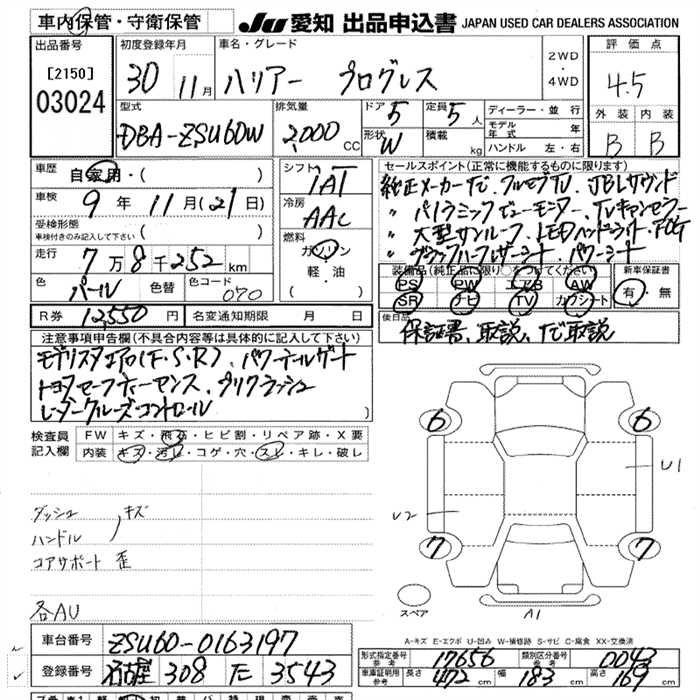 車内保管・守衛保管
JU 愛知 出品申込書 JAPAN USED CAR DEALERS ASSOCIATION
出品番号 [2150] 03024
初度登録年月 30 11月
車名・グレード ハリアー プログレス
2WD・4WD
評価点 4.5
外装 B 内装 B
型式 DBA-ZSU60W
排気量 2,000 CC
ドア 5 定員 5人
形状 W 積載 kg
ディーラー・並行
モデル年式 年
ハンドル 左・右
車歴 自家用・( )
車検 9年 11月(21日)
受検形態 車検付きのみ記入して下さい ( )
走行 7万8千252km
色 パール 色替 色コード 070
シフト IAT
冷房 AAC
燃料 ガソリン 軽・油 ( )
セールスポイント(正常に機能するものに限ります)
純正メーカーナビ、フルセグTV、JBLサウンド
〃 パノラミックビューモニター、TVキャンセラー
〃 大型サンルーフ、LEDヘッドライト、FOG
〃 ブラックハーフレザーシート、パワーシート
装備品(純正品に限り○をつけてください)
PS PW エアB AW
SR ナビ TV カワシート
新車保証書 有・無
R券 12,550円 名変通知期限 月 日
後日品 保証書、取説、ナビ取説
注意事項申告欄(不具合内容等は具体的に記入して下さい)
モデリスタエアロ(F・S・R)、パワーテールゲート
トヨタセーフティーセンス、プリクラッシュ
レーダークルーズコントロール )
検査員記入欄 FW キズ・飛石・ヒビ割・リペア跡・X要
内装 キズ・汚レ・コゲ・穴・スレ・キレ・破レ
ダッシュ
ハンドル 〉キズ
コアサポート 歪
各AU
6 6
U1
U2
7 7
スペア A1
A-キズ E-エクボ U-凹み W-補修跡 S-サビ C-腐食 XX-交換済
車台番号 ZSU60-0163197
登録番号 名古屋 308 た 3543
形式指定番号 参考 17656 類別区分番号 参考 0043
車庫証明用 参考 長さ 472cm 幅 183cm 高さ 169cm